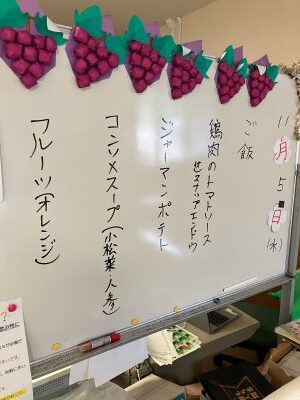 11月5日(水)
ご飯
鶏肉のトマトソース
せスナップエンドウ
ジャーマンポテト
コンソメスープ(小松菜・人参)
フルーツ(オレンジ)